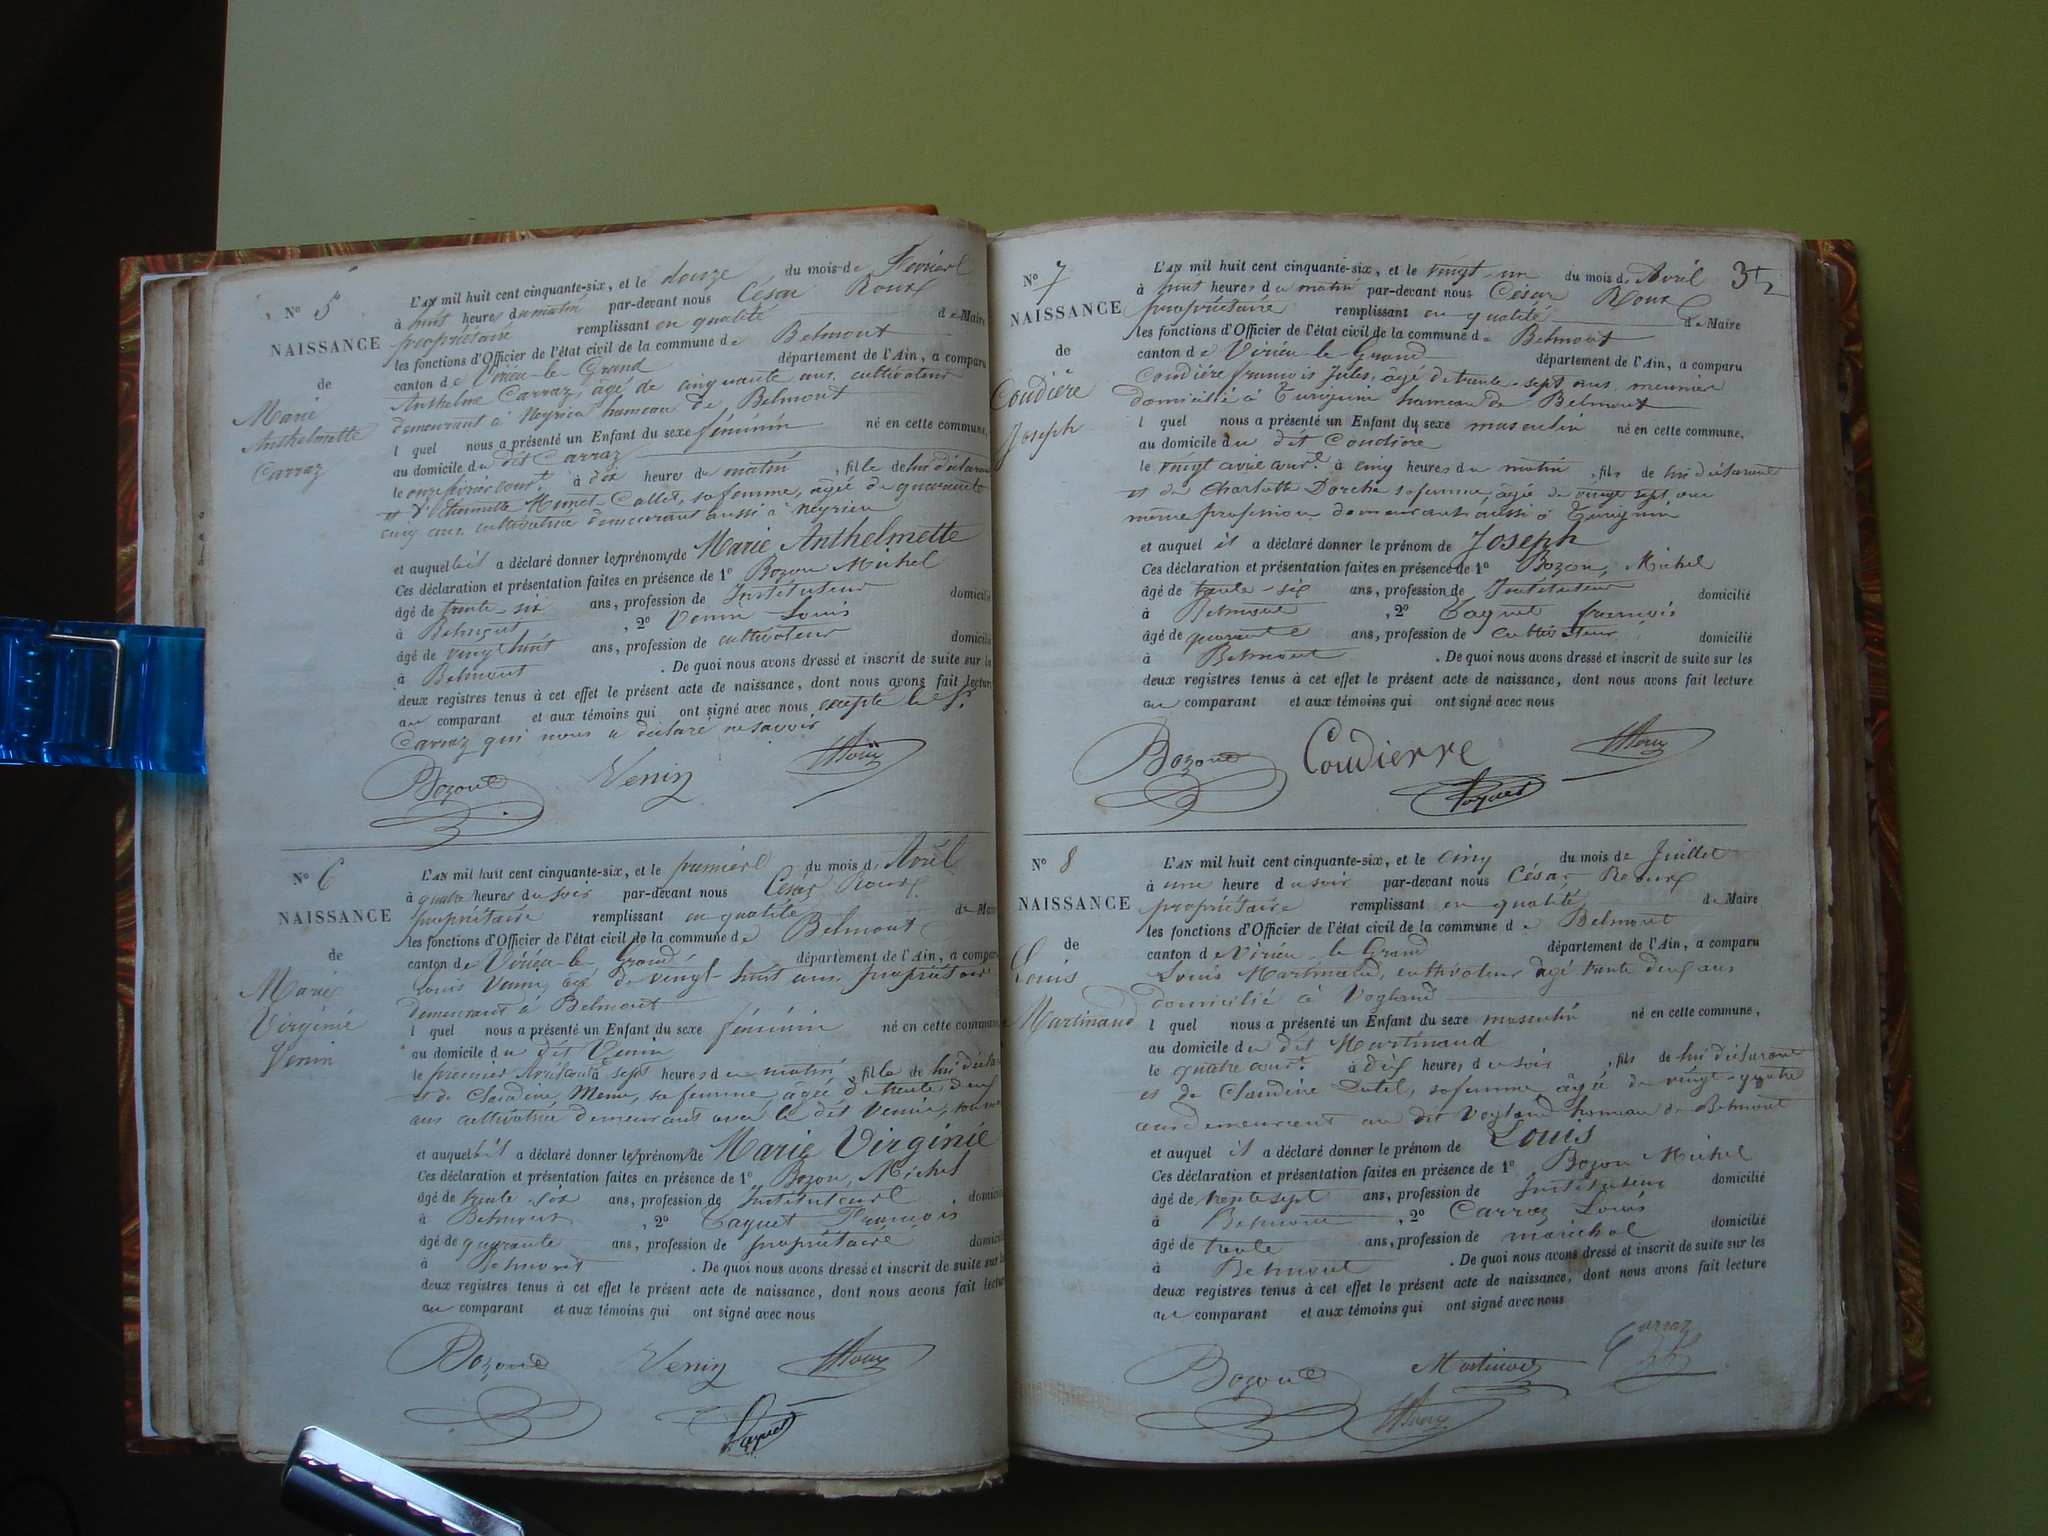 N° 5
NAISSANCE
de
Marie
Anthelmette
Carraz
L'AN mil huit cent cinquante-six, et le douze du mois de Février
à huit heures du matin par-devant nous César Roux
propriétaire remplissant en qualité de Maire
les fonctions d'Officier de l'état civil de la commune de Belmont
canton de Virieu-le-Grand département de l'Ain, a comparu
Anthelme Carraz, âgé de cinquante ans, cultivateur
demeurant à Neyrieu hameau de Belmont
l quel nous a présenté un Enfant du sexe féminin né en cette commune,
au domicile du dit Carraz
le onze février cour.t à dix heures du matin, fille de lui déclarant
et d' Humet-Collet, sa femme, âgée de quarante
cinq ans, cultivatrice demeurant aussi à Neyrieu
et auquel il a déclaré donner les prénoms de Marie Anthelmette
Ces déclaration et présentation faites en présence de 1° Bozon Michel
âgé de trente-six ans, profession de Instituteur domicilié
à Belmont, 2° Venin Louis
âgé de vingt huit ans, profession de cultivateur domicilié
à Belmont. De quoi nous avons dressé et inscrit de suite sur les
deux registres tenus à cet effet le présent acte de naissance, dont nous avons fait lecture
au comparant et aux témoins qui ont signé avec nous excepté le Sr
Carraz qui nous a déclaré ne savoir
Bozon Venin Roux
N° 6
NAISSANCE
de
Marie
Virginie
Venin
L'AN mil huit cent cinquante-six, et le premier du mois d' Avril
à quatre heures du soir par-devant nous César Roux
propriétaire remplissant en qualité de Maire
les fonctions d'Officier de l'état civil de la commune de Belmont
canton de Virieu-le-Grand département de l'Ain, a comparu
Louis Venin, âgé de vingt-huit ans, propriétaire
demeurant à Belmont
l quel nous a présenté un Enfant du sexe féminin né en cette commune,
au domicile du dit Venin
le premier Avril cour.t à sept heures du matin, fille de lui déclarant
et de Claudine, sa femme, âgée de trente deux
ans cultivatrice demeurant avec le dit Venin, son mari
et auquel il a déclaré donner les prénoms de Marie Virginie
Ces déclaration et présentation faites en présence de 1° Bozon, Michel
âgé de trente-six ans, profession de Instituteur, domicilié
à Belmont, 2° Taquet François
âgé de quarante ans, profession de propriétaire domicilié
à Belmont. De quoi nous avons dressé et inscrit de suite sur les
deux registres tenus à cet effet le présent acte de naissance, dont nous avons fait lecture
au comparant et aux témoins qui ont signé avec nous
Bozon Venin Roux
Taquet
32
N° 7
NAISSANCE
de
Coudière
Joseph
L'AN mil huit cent cinquante-six, et le vingt-un du mois d' Avril
à huit heures du matin par-devant nous César Roux
propriétaire remplissant en qualité de Maire
les fonctions d'Officier de l'état civil de la commune de Belmont
canton de Virieu-le-Grand département de l'Ain, a comparu
Coudière françois Jules, âgé de trente-sept ans, meunier
domicilié à Turignin hameau de Belmont
l quel nous a présenté un Enfant du sexe masculin né en cette commune,
au domicile du dit Coudière
le vingt avril cour.t à cinq heures du matin, fils de lui déclarant
et de Charlotte Dorche sa femme, âgée de vingt sept ans
même profession demeurant aussi à Turignin
et auquel il a déclaré donner le prénom de Joseph
Ces déclaration et présentation faites en présence de 1° Bozon, Michel
âgé de trente-six ans, profession de Instituteur domicilié
à Belmont, 2° Taquet françois
âgé de quarante ans, profession de cultivateur domicilié
à Belmont. De quoi nous avons dressé et inscrit de suite sur les
deux registres tenus à cet effet le présent acte de naissance, dont nous avons fait lecture
au comparant et aux témoins qui ont signé avec nous
Bozon Coudierre Roux
Taquet
N° 8
NAISSANCE
de
Louis
Martinand
L'AN mil huit cent cinquante-six, et le cinq du mois de Juillet
à une heure du soir par-devant nous César Roux
propriétaire remplissant en qualité de Maire
les fonctions d'Officier de l'état civil de la commune de Belmont
canton de Virieu-le-Grand département de l'Ain, a comparu
Louis Martinand, cultivateur âgé trente deux ans
domicilié à Vogland
l quel nous a présenté un Enfant du sexe masculin né en cette commune,
au domicile du dit Martinand
le quatre cour.t à dix heures du soir, fils de lui déclarant
et de Claudine Dutel, sa femme, âgée de vingt-quatre
ans demeurant au dit Vogland hameau de Belmont
et auquel il a déclaré donner le prénom de Louis
Ces déclaration et présentation faites en présence de 1° Bozon Michel
âgé de trente sept ans, profession de Instituteur domicilié
à Belmont, 2° Carraz Louis
âgé de trente ans, profession de maréchal domicilié
à Belmont. De quoi nous avons dressé et inscrit de suite sur les
deux registres tenus à cet effet le présent acte de naissance, dont nous avons fait lecture
au comparant et aux témoins qui ont signé avec nous
Bozon Martinand Carraz
Roux